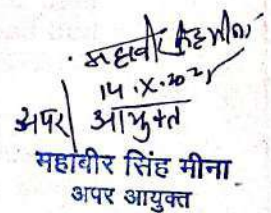 महावीर सिंह मीना
14.X.2021
अपर आयुक्त
महाबीर सिंह मीना
अपर आयुक्त